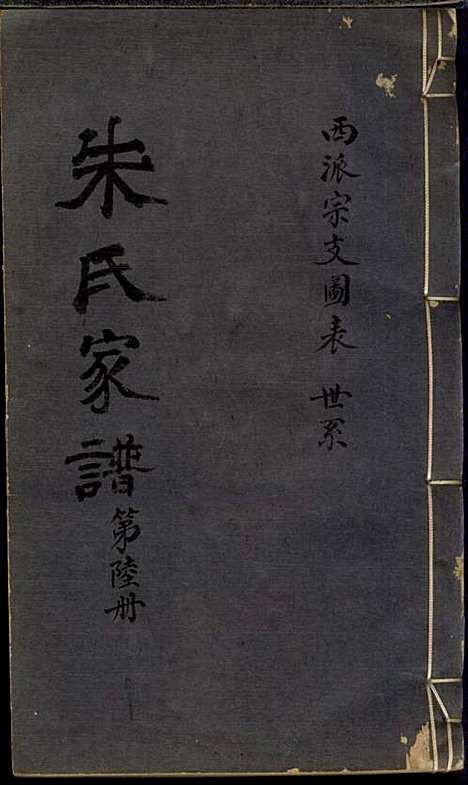 西派宗支圖表 世系
朱氏家譜 第陸册